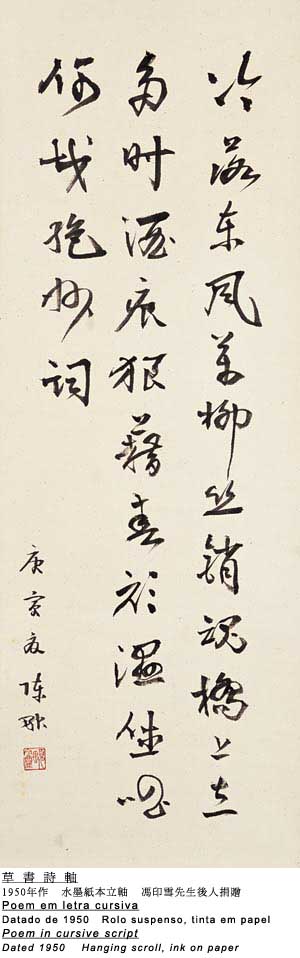 冷落東風萬柳絲銷魂橋上立
多時酒痕狼藉春衫溼低唱
何戡絕妙詞
庚寅夏陳融
草書詩軸
1950年作　水墨紙本立軸　馮印雪先生後人捐贈
Poem em letra cursiva
Datado de 1950 Rolo suspenso, tinta em papel
Poem in cursive script
Dated 1950 Hanging scroll, ink on paper